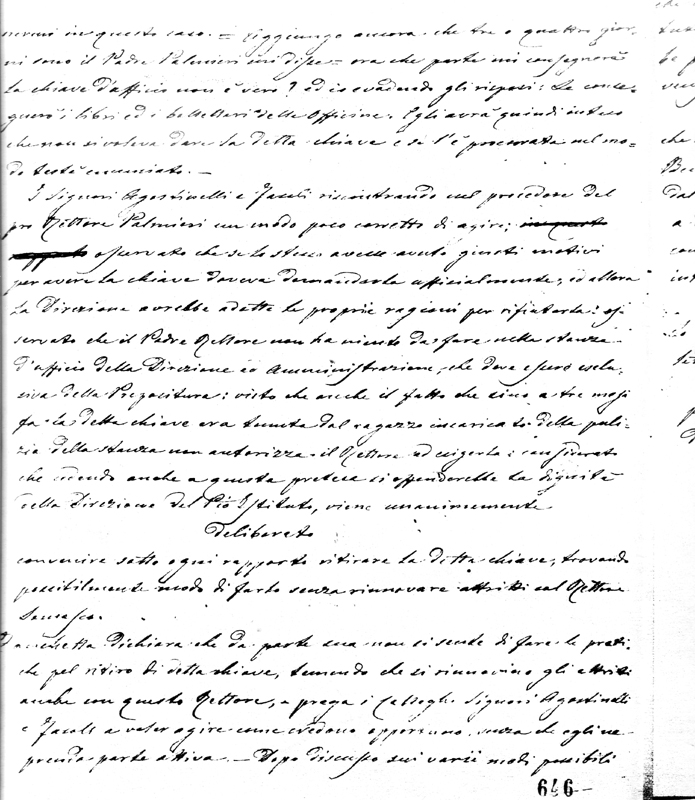 in questo caso. = Aggiungo ancora che tre o quattro gior=
ni sono il Padre Palmieri mi disse = ora che parte mi consegnerà
la chiave d'afficio non è vero? ed io evadendo gli risposi: Le conse=
gnerò i libri ed i bollettari delle Officine. Egli avrà quindi inteso
che non si voleva dare la detta chiave e se l'è procurata nel mo=
do testè enunciato. —
I Signori Agostinelli e Jacoli riscontrando nel procedere del
pro Rettore Palmieri un modo poco corretto di agire; in questo
osservato che se lo stesso avesse avuto giusti motivi
per avere la chiave doveva domandarla ufficialmente, ed allora
la Direzione avrebbe adotte le proprie ragioni per rifiutarla: os=
servato che il Padre Rettore non ha niente da fare nella stanza
d'ufficio della Direzione ed Amministrazione, che deve essere esclu=
siva della Prepositura: visto che anche il fatto che sino a tre mesi
fa la detta chiave era tenuta dal ragazzo incaricato della puli=
zia della stanza non autorizza il Rettore ad esigerla: considerato
che cedendo anche a questa pretesa si offenderebbe la dignità
della Direzione del Pio Istituto, viene unanimemente
deliberato
convenire sotto ogni rapporto ritirare la detta chiave, trovando
possibilmente modo di farlo senza rinnovare attriti col Rettore
Somasco.
dichiara che da parte sua non si sente di fare le prati=
che pel ritiro di detta chiave, temendo che si rinnovino gli attriti
anche con questo Rettore, e prega i Colleghi Signori Agostinelli
e Jacoli a voler agire come credono opportuno, senza che egli ne
prenda parte attiva. — Dopo discusso sui varii modi possibili
646 —